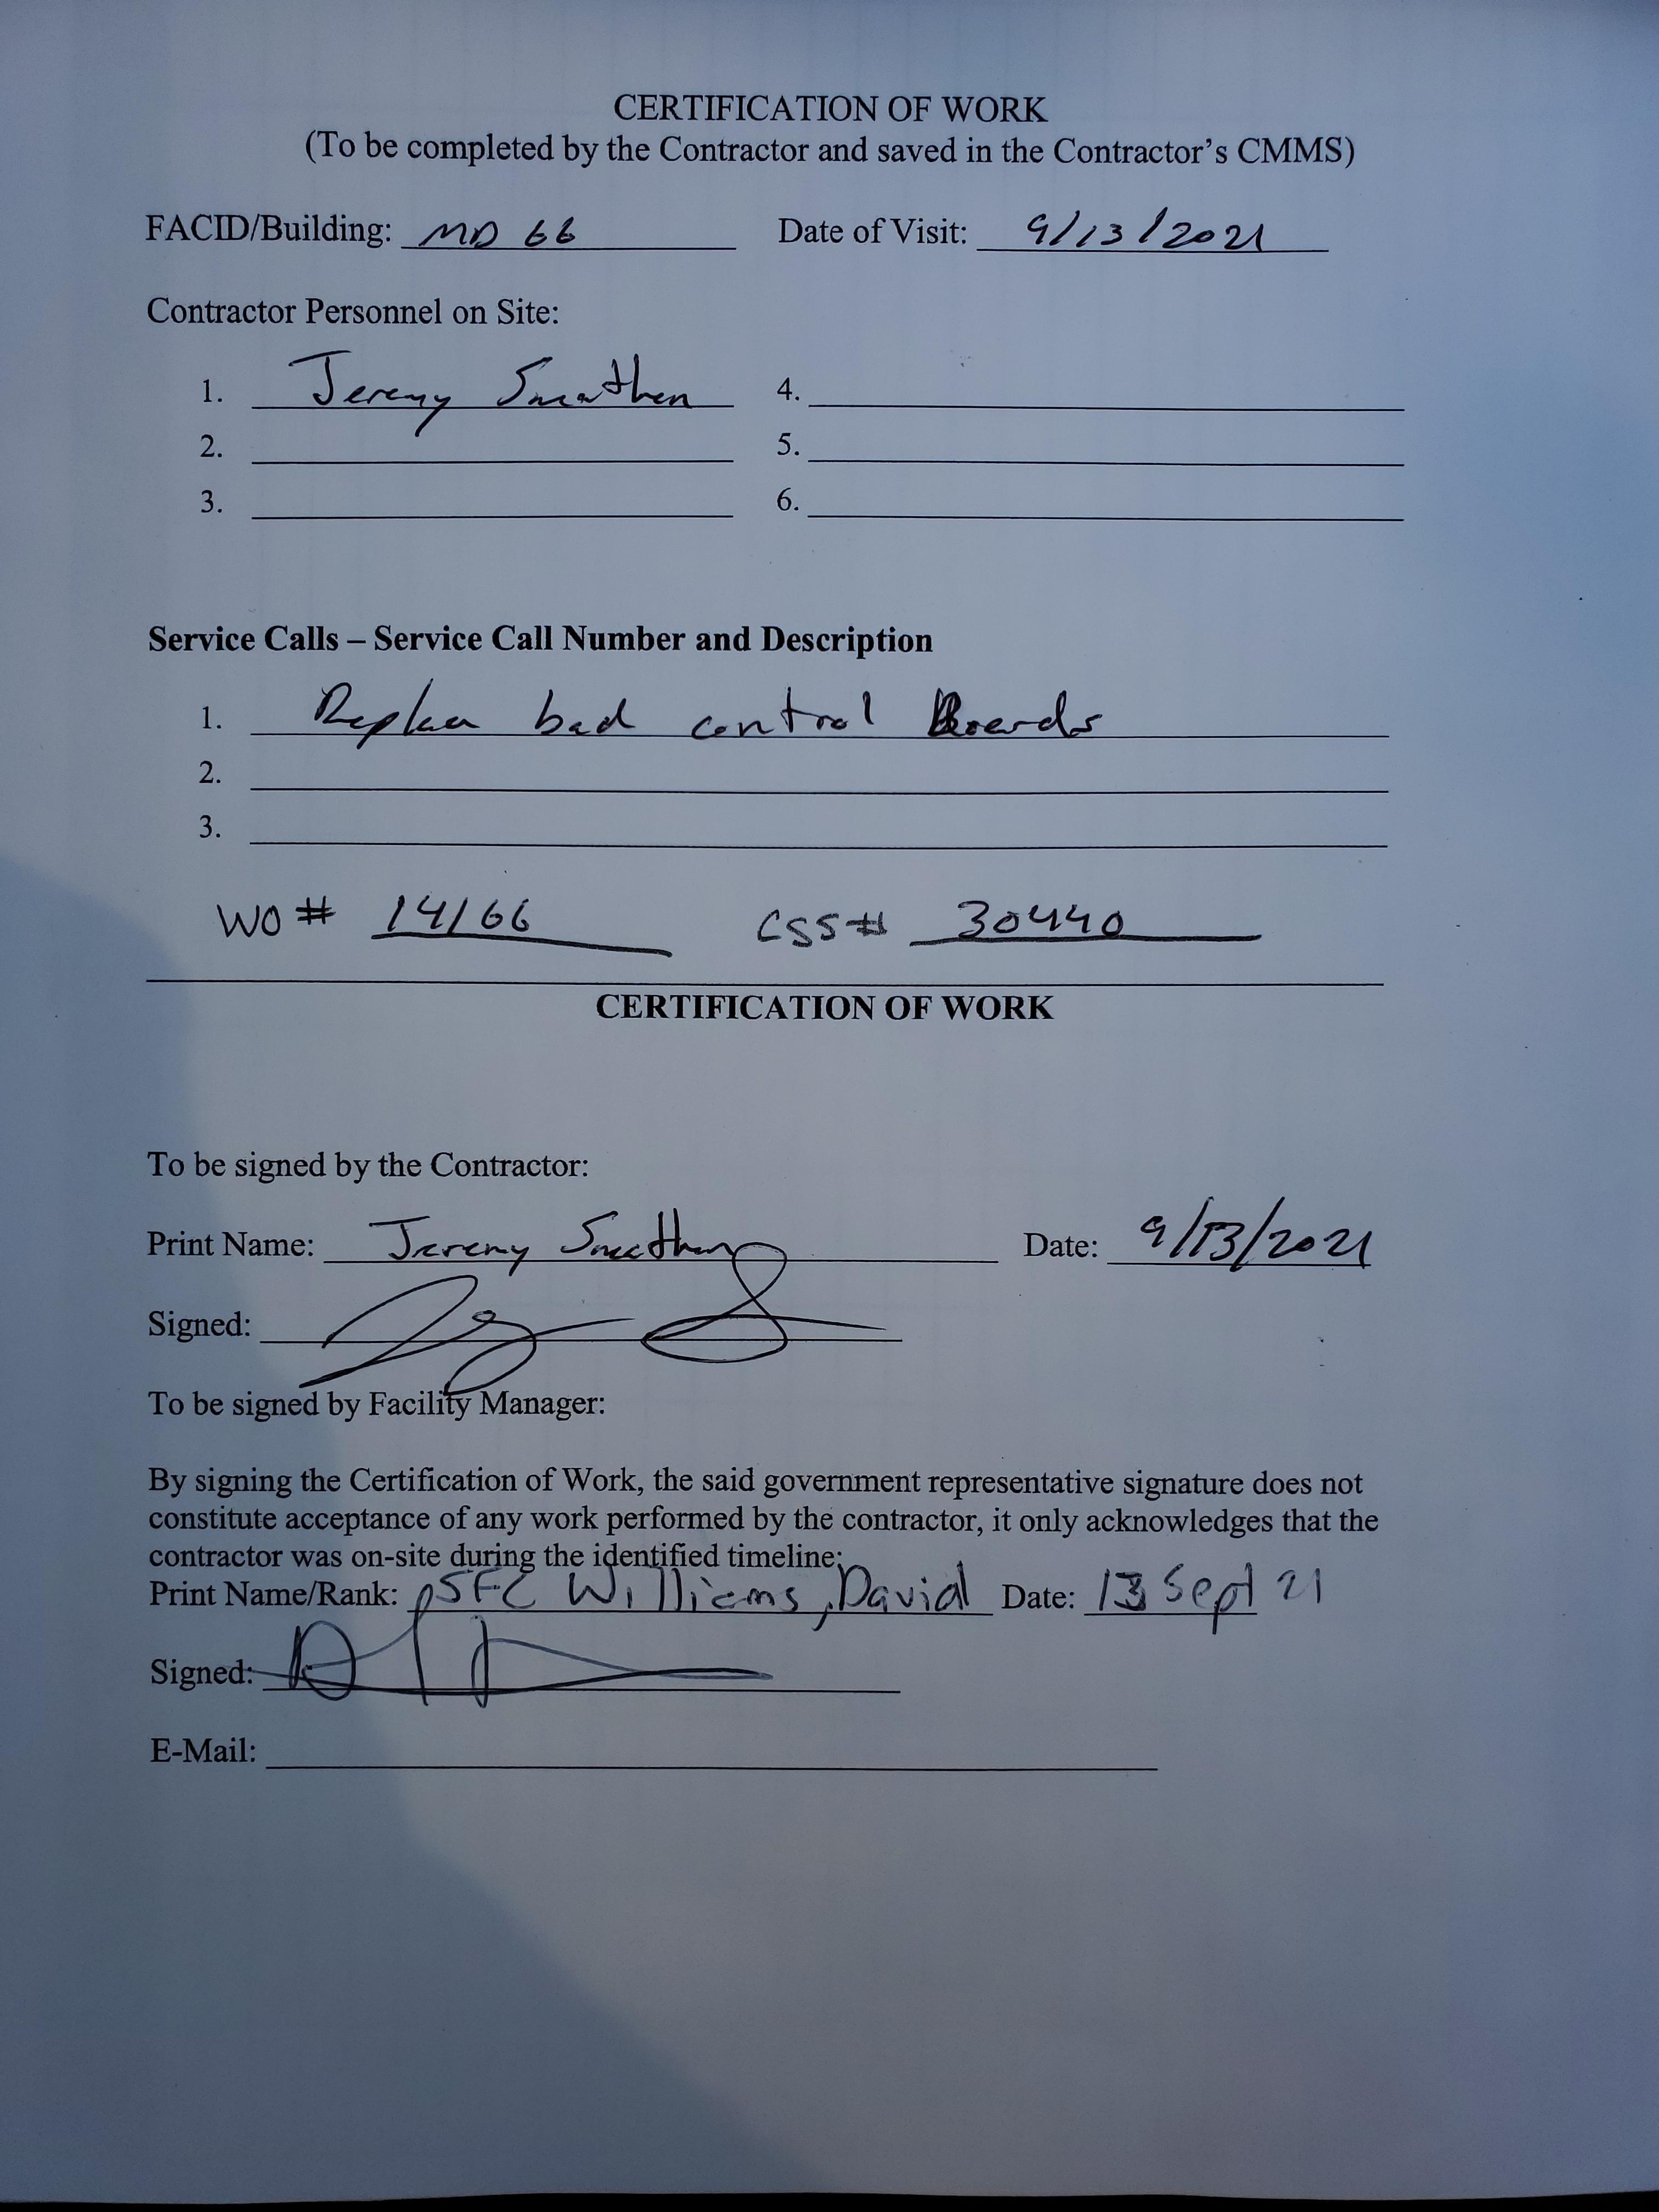 CERTIFICATION OF WORK
(To be completed by the Contractor and saved in the Contractor's CMMS)
FACID/Building: MD 66 Date of Visit: 9/13/2021
Contractor Personnel on Site:
1. Jeremy 4.
2. 5.
3. 6.
Service Calls – Service Call Number and Description
1. bad control Boards
2.
3.
WO # 14166 CSS# 30440
CERTIFICATION OF WORK
To be signed by the Contractor:
Print Name: Jeremy Date: 9/13/2021
Signed:
To be signed by Facility Manager:
By signing the Certification of Work, the said government representative signature does not
constitute acceptance of any work performed by the contractor, it only acknowledges that the
contractor was on-site during the identified timeline:
Print Name/Rank: SFC Williams, David Date: 13 Sept 21
Signed:
E-Mail: